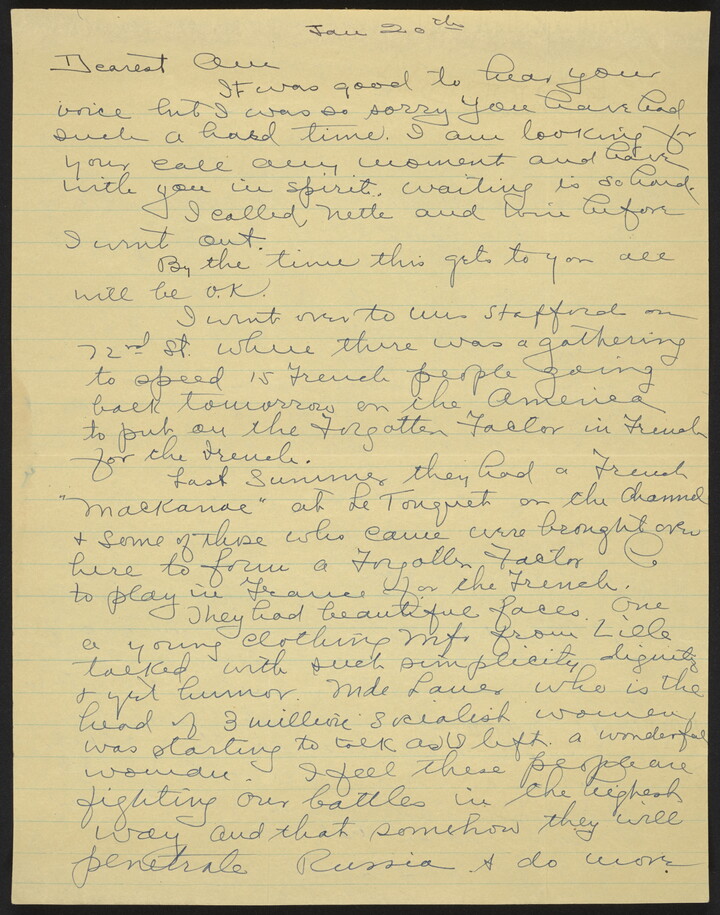 Jan 20th
Dearest Ann
It was good to hear your
voice but I was so sorry you have had
such a hard time. I am looking for
your call any moment and have
with you in spirit. waiting is so hard.
I called Nette and Win before
I went out.
By the time this gets to you all
will be O.K.
I went over to Mrs Stafford on
72nd St. where there was a gathering
to speed 15 French people going
back tomorrow on the America
to put on the Forgotten Factor in French
for the French.
Last Summer they had a French
"Mackanac" at Le Touquet on the Channel
& some of those who came were brought over
here to form a Forgotten Factor
to play in France for the French.
They had beautiful faces. One
a young clothing Mfr from Lille
talked with such simplicity, dignity
& yet humor. Mde Laure who is the
head of 3 million Socialist women
was starting to talk as I left. a wonderful
woman. I feel these people are
fighting our battles in the highest
way and that somehow they will
penetrate Russia & do more